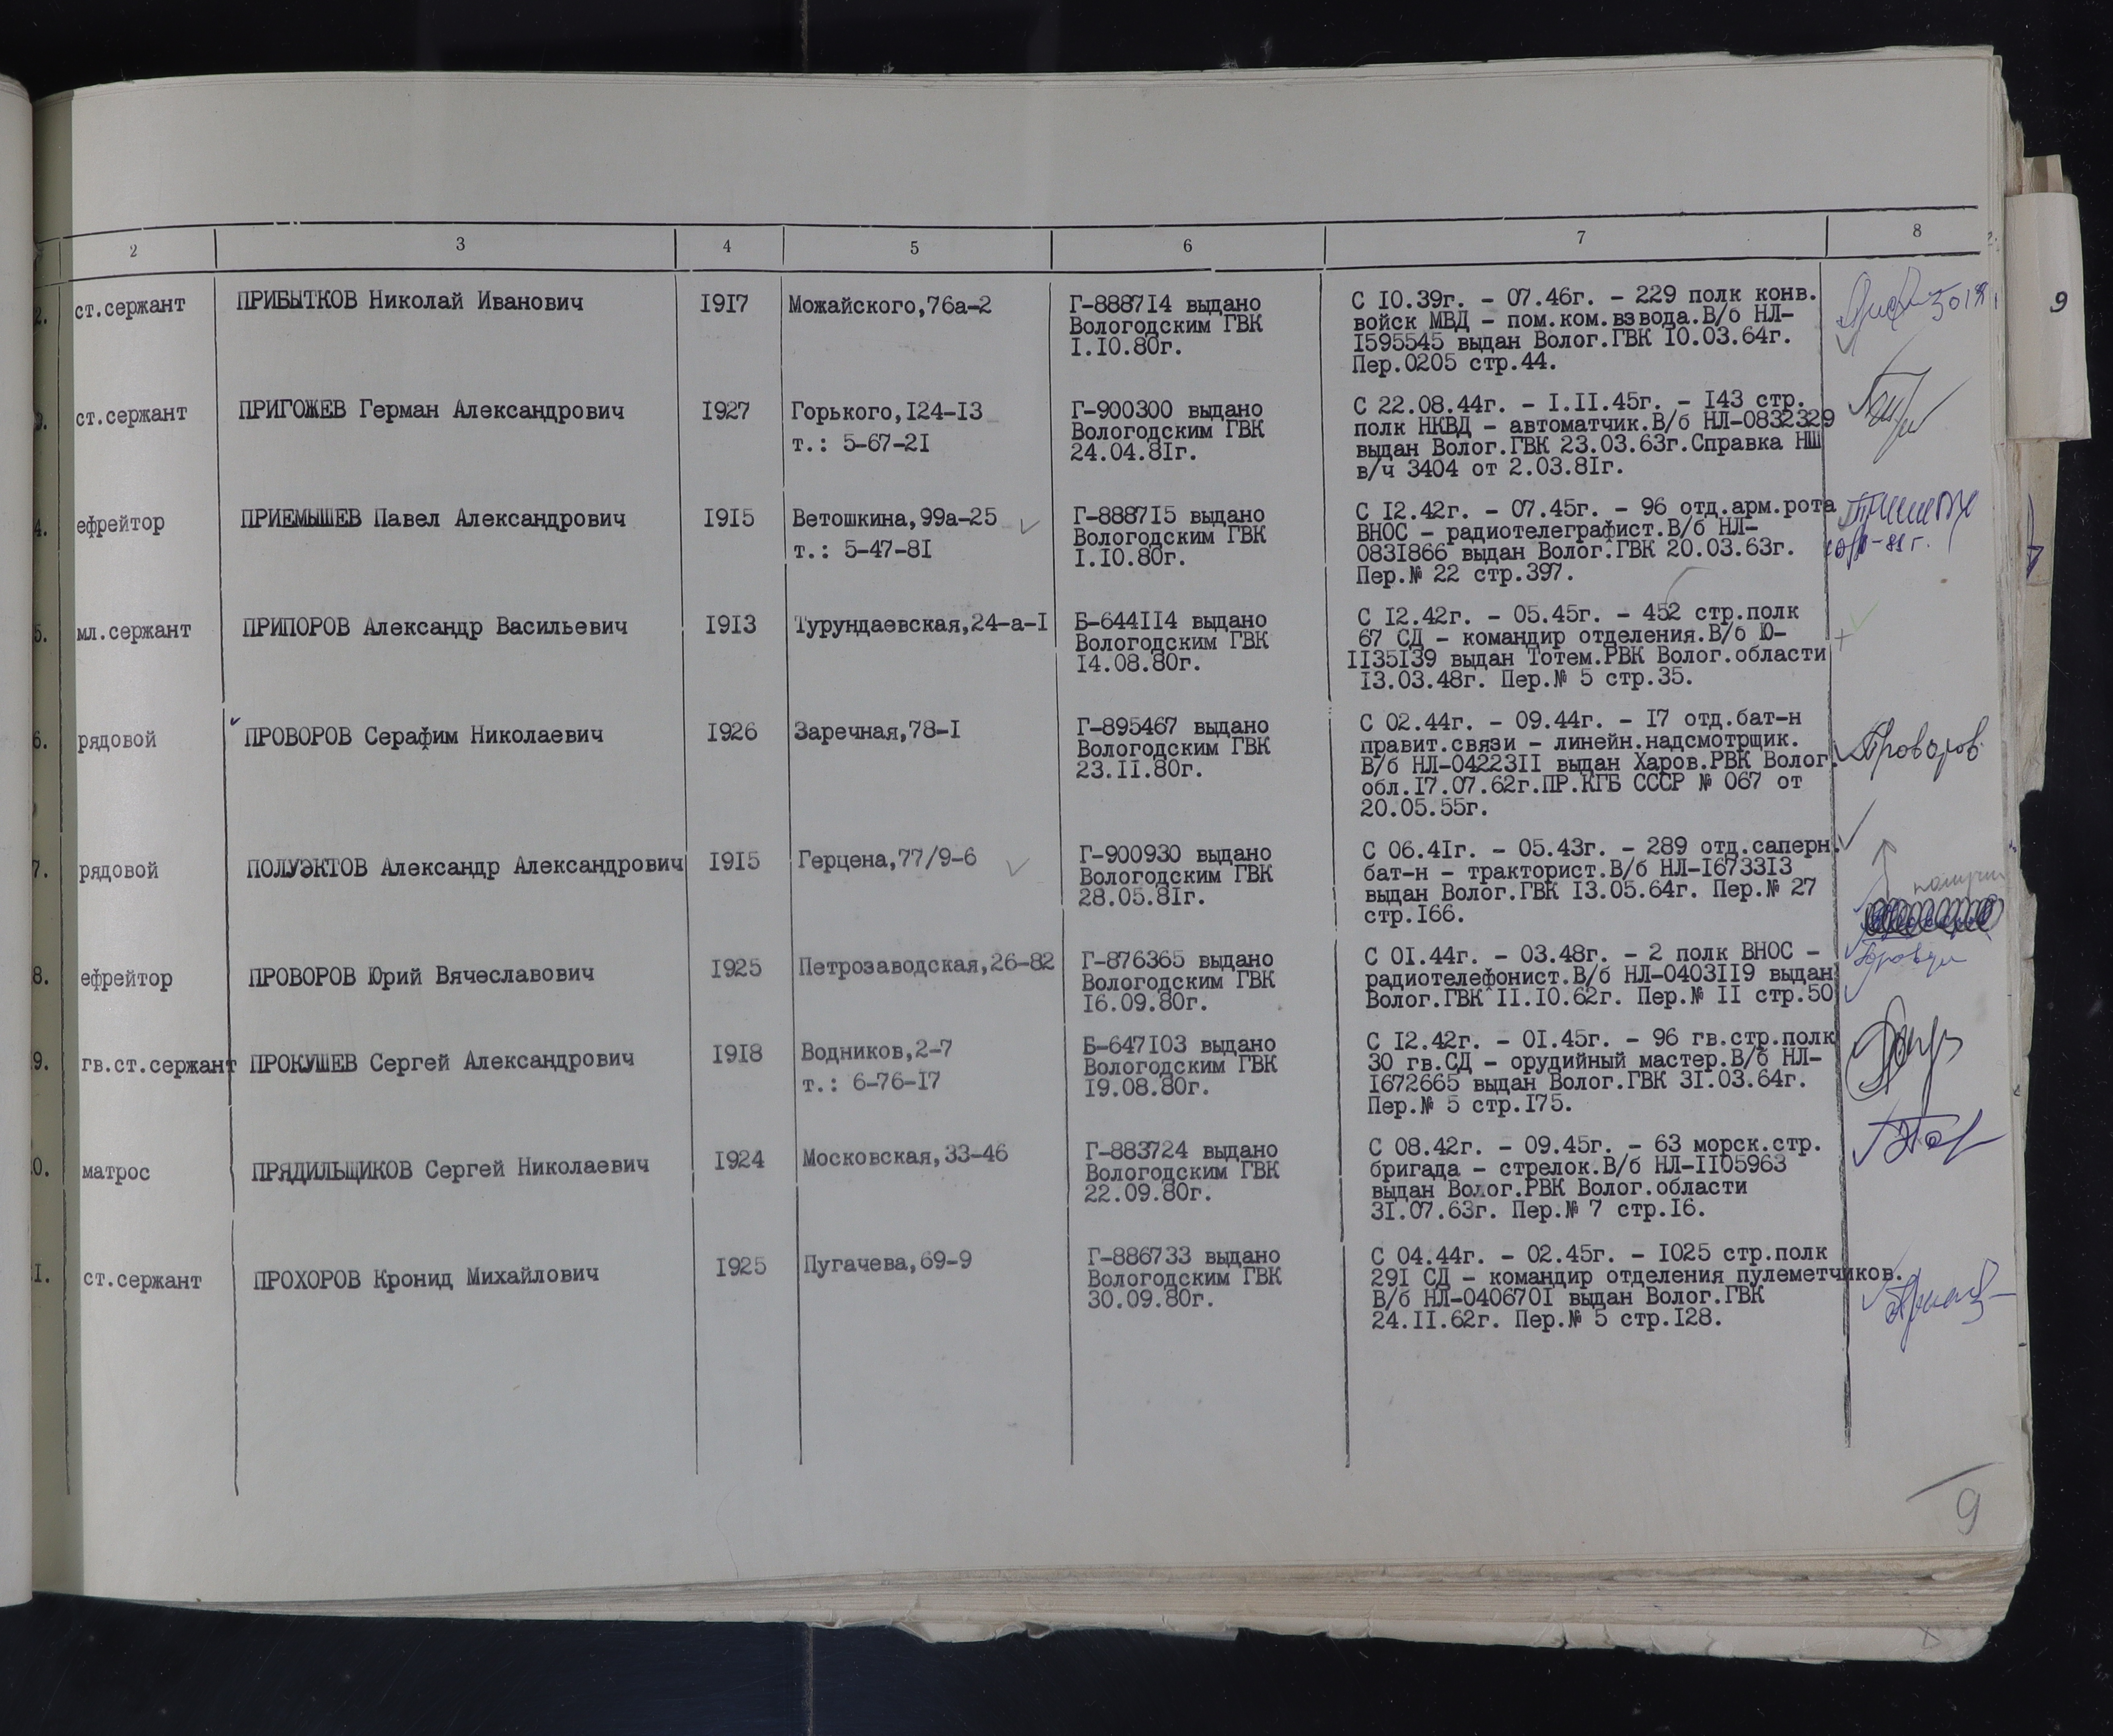 2 3 4 5 6 7 8
2. ст.сержант ПРИБЫТКОВ Николай Иванович 1917 Можайского,76а-2 Г-888714 выдано С 10.39г. - 07.46г. - 229 полк конв.
Вологодским ГВК войск МВД - пом.ком.взвода.В/б НЛ-
1.10.80г. 1595545 выдан Волог.ГВК 10.03.64г.
Пер.0205 стр.44.
9
ст.сержант ПРИГОЖЕВ Герман Александрович 1927 Горького,124-13 Г-900300 выдано С 22.08.44г. - 1.11.45г. - 143 стр.
т.: 5-67-21 Вологодским ГВК полк НКВД - автоматчик.В/б НЛ-0832329
24.04.81г. выдан Волог.ГВК 23.03.63г.Справка НШ
в/ч 3404 от 2.03.81г.
4. ефрейтор ПРИЕМЫШЕВ Павел Александрович 1915 Ветошкина,99а-25 Г-888715 выдано С 12.42г. - 07.45г. - 96 отд.арм.рота
т.: 5-47-81 Вологодским ГВК ВНОС - радиотелеграфист.В/б НЛ-
1.10.80г. 0831866 выдан Волог.ГВК 20.03.63г.
Пер.№ 22 стр.397.
5. мл.сержант ПРИПОРОВ Александр Васильевич 1913 Турундаевская,24-а-1 Б-644114 выдано С 12.42г. - 05.45г. - 452 стр.полк
Вологодским ГВК 67 СД - командир отделения.В/б Ю-
14.08.80г. 1135139 выдан Тотем.РВК Волог.области
13.03.48г. Пер.№ 5 стр.35.
6. рядовой ПРОВОРОВ Серафим Николаевич 1926 Заречная,78-1 Г-895467 выдано С 02.44г. - 09.44г. - 17 отд.бат-н Проворов
Вологодским ГВК правит.связи - линейн.надсмотрщик.
23.11.80г. В/б НЛ-0422311 выдан Харов.РВК Волог.
обл.17.07.62г.ПР.КГБ СССР № 067 от
20.05.55г.
7. рядовой ПОЛУЭКТОВ Александр Александрович 1915 Герцена,77/9-6 Г-900930 выдано С 06.41г. - 05.43г. - 289 отд.саперн.
Вологодским ГВК бат-н - тракторист.В/б НЛ-1673313
28.05.81г. выдан Волог.ГВК 13.05.64г. Пер.№ 27
стр.166.
8. ефрейтор ПРОВОРОВ Юрий Вячеславович 1925 Петрозаводская,26-82 Г-876365 выдано С 01.44г. - 03.48г. - 2 полк ВНОС -
Вологодским ГВК радиотелефонист.В/б НЛ-0403119 выдан
16.09.80г. Волог.ГВК 11.10.62г. Пер.№ 11 стр.50
9. гв.ст.сержант ПРОКУШЕВ Сергей Александрович 1918 Водников,2-7 Б-647103 выдано С 12.42г. - 01.45г. - 96 гв.стр.полк
т.: 6-76-17 Вологодским ГВК 30 гв.СД - орудийный мастер.В/б НЛ-
19.08.80г. 1672665 выдан Волог.ГВК 31.03.64г.
Пер.№ 5 стр.175.
0. матрос ПРЯДИЛЬЩИКОВ Сергей Николаевич 1924 Московская,33-46 Г-883724 выдано С 08.42г. - 09.45г. - 63 морск.стр.
Вологодским ГВК бригада - стрелок.В/б НЛ-1105963
22.09.80г. выдан Волог.РВК Волог.области
31.07.63г. Пер.№ 7 стр.16.
1. ст.сержант ПРОХОРОВ Кронид Михайлович 1925 Пугачева,69-9 Г-886733 выдано С 04.44г. - 02.45г. - 1025 стр.полк
Вологодским ГВК 291 СД - командир отделения пулеметчиков.
30.09.80г. В/б НЛ-0406701 выдан Волог.ГВК
24.11.62г. Пер.№ 5 стр.128.
9